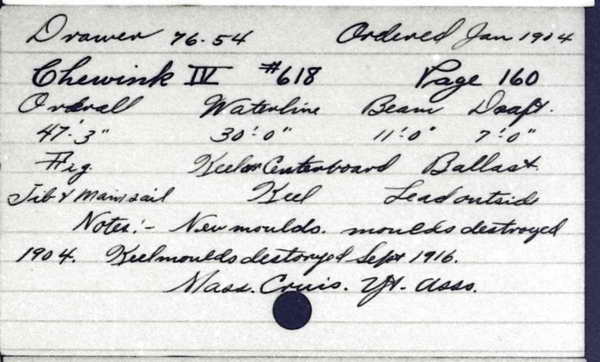 Drawer 76-54 Ordered Jan 1904
Chewink IV #618 Page 160
Overall Waterline Beam Draft.
47'-3" 30'-0" 11'-0" 7'-0"
Fig Keel or Centerboard Ballast
Jib & Mainsail Keel Lead outside
Notes:- New moulds. moulds destroyed
1904. Keelmoulds destoryed Sept 1916.
Mass. Cruis. Yt. Asso.